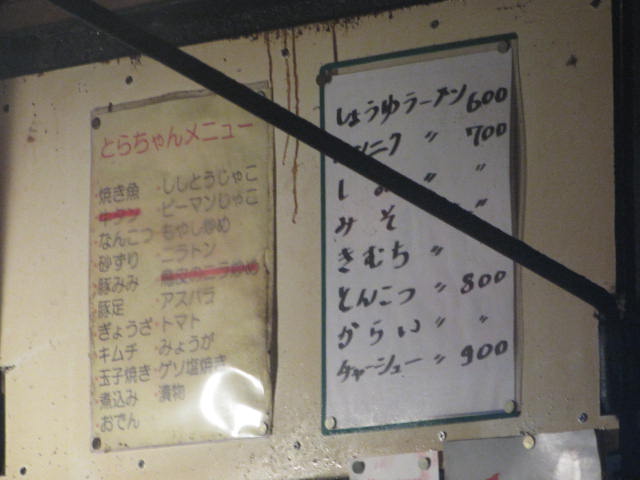 とらちゃんメニュー
・焼き魚
なんこつ
砂ずり
豚みみ
豚足
ぎょうざ
キムチ
玉子焼き
煮込み
おでん
・ししとうじゃこ
・ピーマンじゃこ
・もやし炒め
・ニラトン
・アスパラ
・トマト
・みょうが
・ゲソ塩焼き
・漬物
しょうゆラーメン 600
ンニク 〃 700
し 〃 〃
みそ 〃
きむち 〃
とんこつ 〃 800
からい 〃 〃
チャーシュー 〃 900